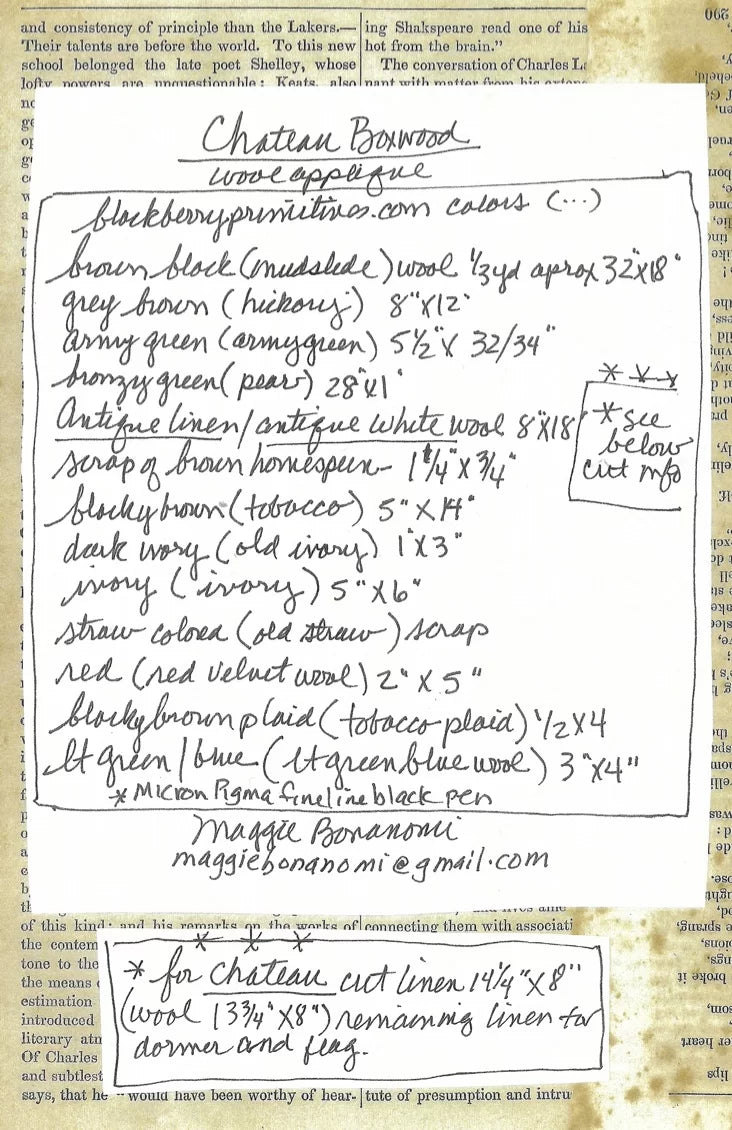 and consistency of principle than the Lakers.—
Their talents are before the world. To this new
school belonged the late poet Shelley, whose
lofty powers are unquestionable; Keats, also
ing Shakspeare read one of his
hot from the brain."
The conversation of Charles La
nant with matter from his
Chateau Boxwood
wool applique
blackberryprimitives.com colors (...)
brown black (mudslide) wool 1/3 yd aprox 32"x18"
grey brown (hickory) 8"x12"
army green (armygreen) 5 1/2" x 32/34"
bronzy green (pear) 28"x1"
Antique linen/antique white wool 8"x18"
scrap of brown homespun - 1 1/4" x 3/4"
blacky brown (tobacco) 5" x 14"
dark ivory (old ivory) 1"x3"
ivory (ivory) 5"x6"
straw colored (old straw) scrap
red (red velvet wool) 2" x 5"
blacky brown plaid (tobacco plaid) 1/2x4
lt green/blue (lt green blue wool) 3"x4"
* Micron Pigma fineline black pen
* * *
* see
below
cut info
Maggie Bonanomi
maggiebonanomi@gmail.com
of this kind; and his remarks on the works of
the contem
tone to the
the means
estimation
introduced
literary atm
Of Charles
and subtlest
says, that he "would have been worthy of hear-
connecting them with associati
tute of presumption and intru
* * *
* for Chateau cut linen 14 1/4" x 8"
(wool 13 3/4" x 8") remaining linen for
dormer and flag.